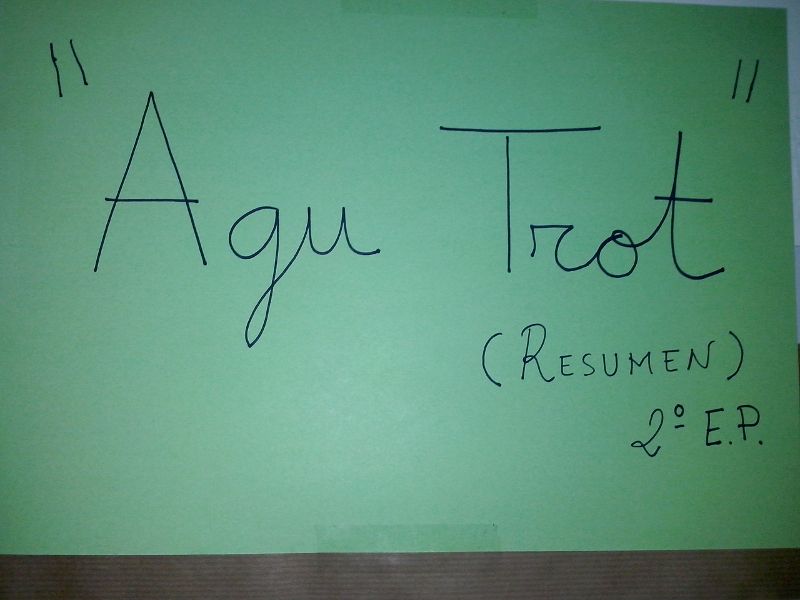 "Agu Trot"
(RESUMEN)
2º E.P.